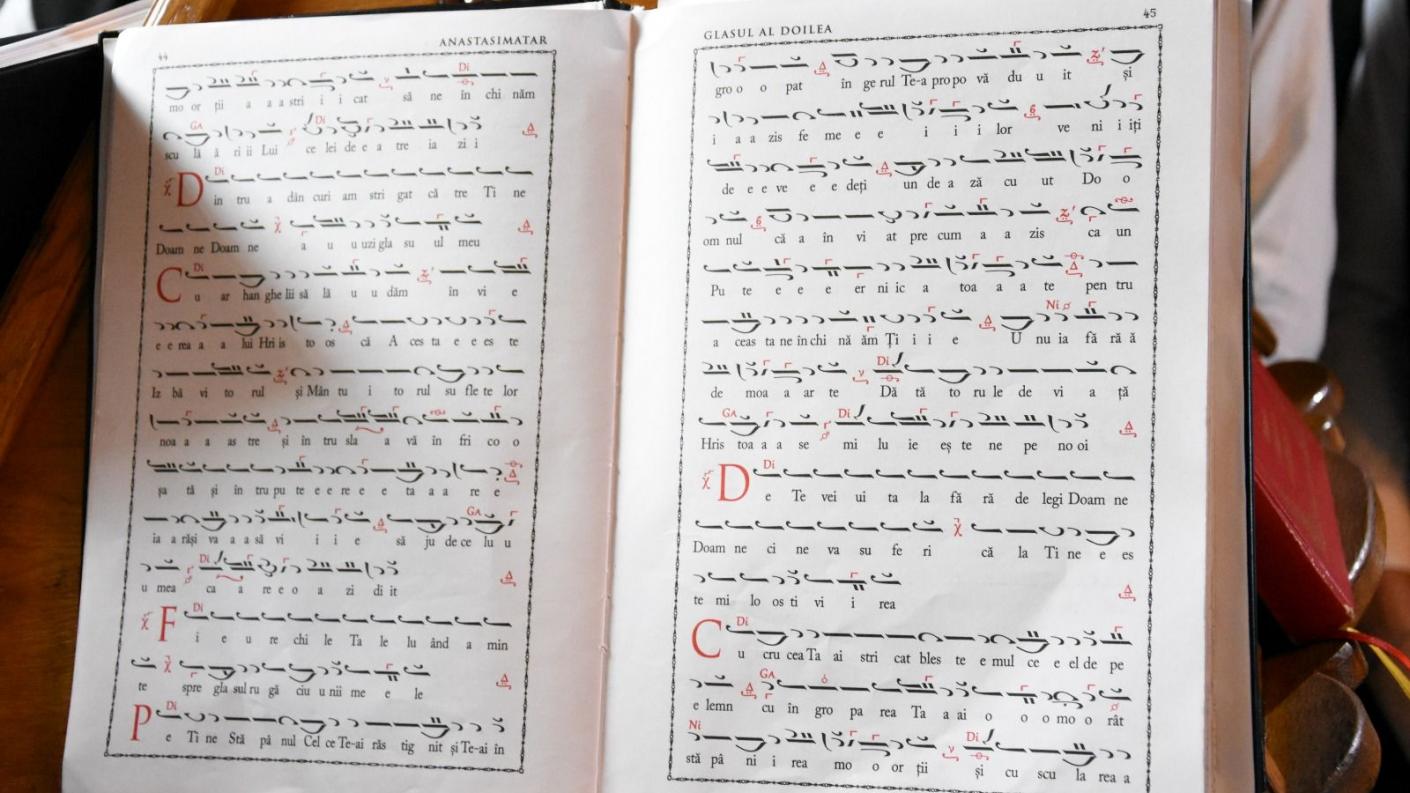 44
ANASTASIMATAR
mo or ții a a a stri i i cat să ne în chi năm
scu lă ă ri ii Lui ce lei de e a tre ia zi i
Din tru a dân curi am stri gat că tre Ti ne
Doam ne Doam ne a u u uzi gla su ul meu
C u ar han ghe lii să lă u u dăm în vi e
e e rea a a lui Hri is to os că A ces ta e e es te
Iz bă vi to rul și Mân tu i to rul su fle te lor
noa a a as tre și în tru sla a vă în fri co o
șa tă și în tru pu te e e re e e ta a a re e
ia a răși va a a să vi i i e să ju de ce lu u
u mea ca a re e o a zi di it
F i e u re chi le Ta le lu ând a min
te spre gla sul ru gă ciu u nii me e le
P e Ti ne Stă pâ nul Cel ce Te-ai răs tig nit și Te-ai în
GLASUL AL DOILEA
45
gro o o pat în ge rul Te-a pro po vă du u it și
i a a zis fe me e e i i i lor ve ni i iți
de e e ve e e deți un de a ză cu ut Do o
om nul că a în vi at pre cum a a zis ca un
Pu te e e e er ni ic a toa a a te pen tru
a ceas ta ne în chi nă ăm Ți i i e U nu ia fă ră ă
de moa a ar te Dă tă to ru le de vi a ță
Hris toa a a se mi lu ie eș te ne pe no oi
D e Te vei ui ta la fă ră de legi Doam ne
Doam ne ci ne va su fe ri că la Ti ne e es
te mi lo os ti vi i rea
C u cru cea Ta ai stri cat bles te e mul ce e el de pe
e lemn cu în gro pa rea Ta a ai o o o mo o rât
stă pâ ni i rea mo o or ții și cu scu la rea a